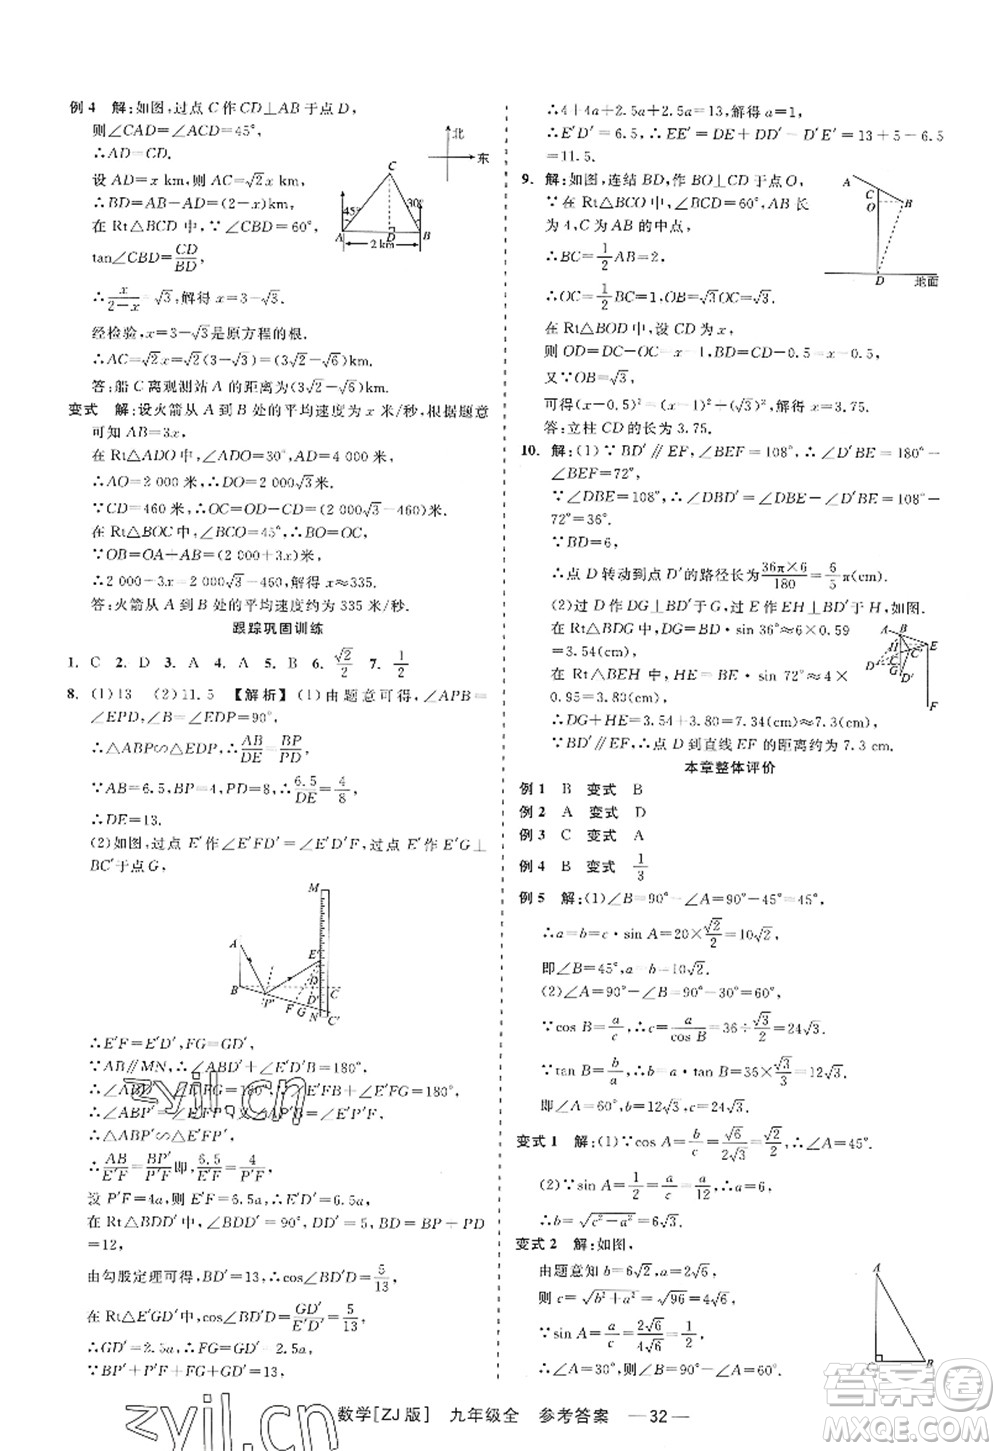 例 4 解:如图,过点 C 作 CD⊥AB 于点 D,
则∠CAD=∠ACD=45°,
∴AD=CD.
设 AD=x km,则 AC=√2x km,
∴BD=AB-AD=(2-x)km.
在 Rt△BCD 中,∵∠CBD=60°,
tan∠CBD=CD/BD,
∴x/(2-x)=√3,解得 x=3-√3.
经检验,x=3-√3是原方程的根.
∴AC=√2x=√2(3-√3)=(3√2-√6)km.
答:船 C 离观测站 A 的距离为(3√2-√6)km.
变式 解:设火箭从 A 到 B 处的平均速度为 x 米/秒,根据题意
可知 AB=3x,
在 Rt△ADO 中,∠ADO=30°,AD=4 000 米,
∴AO=2 000 米,∴DO=2 000√3米,
∵CD=460米,∴OC=OD-CD=(2 000√3-460)米.
在 Rt△BOC 中,∠BCO=45°,∴BO=OC,
∵OB=OA+AB=(2 000+3x)米,
∴2 000+3x=2 000√3-460,解得 x≈335.
答:火箭从 A 到 B 处的平均速度约为 335 米/秒.
跟踪巩固训练
1. C 2. D 3. A 4. A 5. B 6. √2/2 7. 1/2
8. (1)13 (2)11.5 【解析】(1)由题意可得,∠APB=
∠EPD,∠B=∠EDP=90°,
∴△ABP∽△EDP,∴AB/DE=BP/PD,
∵AB=6.5,BP=4,PD=8,∴6.5/DE=4/8,
∴DE=13.
(2)如图,过点 E′作∠E′FD′=∠E′D′F,过点 E′作 E′G⊥
BC′于点 G,
M
A
E′
D
B
P′
D′
C
F G N
C′
∴E′F=E′D′,FG=GD′,
∵AB∥MN,∴∠ABD′+∠E′D′B=180°,
∴∠ABD′+∠E′FG=180°,∵∠E′FB+∠E′FG=180°,
∴∠ABP′=∠E′FP′,又∵∠AP′B=∠E′P′F,
∴△ABP′∽△E′FP′,
∴AB/E′F=BP′/P′F即,6.5/E′F=4/P′F,
设 P′F=4a,则 E′F=6.5a,∴E′D′=6.5a,
在 Rt△BDD′中,∠BDD′=90°,∵BD=BP+PD
=12,
由勾股定理可得,BD′=13,∴cos∠BD′D=5/13,
在 Rt△E′GD′中,cos∠BD′D=GD′/E′D′=5/13,
∴GD′=2.5a,∴FG=GD′=2.5a,
∵BP′+P′F+FG+GD′=13,
∴4+4a+2.5a+2.5a=13,解得 a=1,
∴E′D′=6.5,∴EE′=DE+DD′-D′E′=13+5-6.5
=11.5.
9. 解:如图,连结 BD,作 BO⊥CD 于点 O,
在 Rt△BCO 中,∵∠BCD=60°,AB 长
为 4,C 为 AB 的中点,
∴BC=1/2AB=2,
∴OC=1/2BC=1,BO=√3OC=√3.
在 Rt△BOD 中,设 CD 为 x,
则 OD=DC-OC=x-1,BD=CD-0.5=x-0.5,
又∵BO=√3,
可得(x-0.5)²=(x-1)²+(√3)²,解得 x=3.75.
答:立柱 CD 的长为 3.75.
10. 解:(1)∵BD′∥EF,∠BEF=108°,∴∠D′BE=180°
-∠BEF=72°,
∵∠DBE=108°,∴∠DBD′=∠DBE-∠D′BE=108°-
72°=36°.
∵BD=6,
∴点 D 转动到点 D′的路径长为36π×6/180=6/5π(米).
(2)过 D 作 DG⊥BD′于 G,过 E 作 EH⊥BD′于 H,如图.
在 Rt△BDG 中,DG=BD·sin 36°≈6×0.59
=3.54(米),
在 Rt△BEH 中,HE=BE·sin 72°≈4×
0.95=3.80(米),
∴DG+HE=3.54+3.80=7.34≈7.3(米),
∵BD′∥EF,∴点 D 到直线 EF 的距离约为 7.3 米.
本章整体评价
例 1 B 变式 B
例 2 A 变式 D
例 3 C 变式 A
例 4 B 变式 1/3
例 5 解:(1)∠B=90°-∠A=90°-45°=45°,
∴a=b=c·sin A=20×√2/2=10√2,
即∠B=45°,a=b=10√2.
(2)∠A=90°-∠B=90°-60°=30°,
∵cos B=a/c,∴c=a/cos B=36÷√3/2=24√3,
∵tan B=b/a,∴b=a·tan B=36×√3/3=12√3,
即∠A=60°,b=12√3,c=24√3.
变式 1 解:(1)∵cos A=b/c=√6/2√3=√2/2,∴∠A=45°.
(2)∵sin A=1/2=a/c=a/12,∴a=6,
∴b=√(c²-a²)=6√3.
变式 2 解:如图,
由题意知 b=6√2,a=2√6,
则 c=√(b²+a²)=√96=4√6,
∵sin A=a/c=2√6/4√6=1/2,
∴∠A=30°,则∠B=90°-∠A=60°.
北
东
C
45°
30°
A D B
2 km
A
C
B
O
D 地面
A B
H E
D C
G
D′
F
A
C B
数学[ZJ版] 九年级全 参考答案 —32—
zyjl.cn
zyjl.cn
答案圈
MXQE.COM